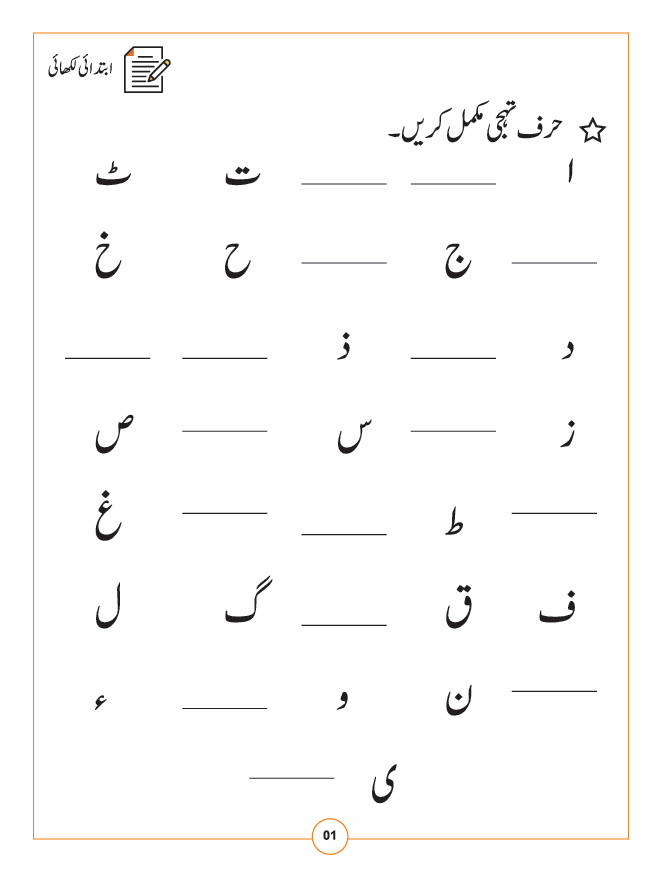 ابتدائی لکھائی
حرف تہجی مکمل کریں۔
ا ____ ____ ت ٹ
____ ج ____ ح خ
د ____ ذ ____ ____
ز ____ س ____ ص
____ ط ____ ____ غ
ف ق ____ گ ل
____ ن و ____ ء
ی ____
01